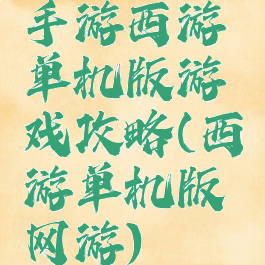 手游西游
单机版游
戏攻略(西
游单机版
网游)